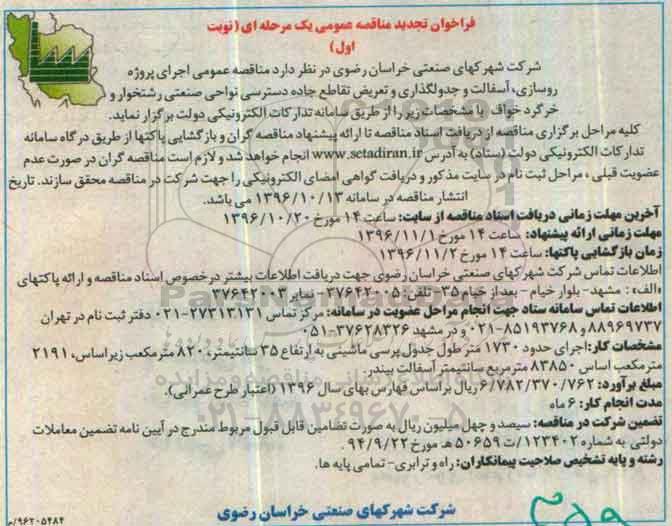 فراخوان تجدید مناقصه عمومی یک مرحله ای (نوبت
اول)
شرکت شهرکهای صنعتی خراسان رضوی در نظر دارد مناقصه عمومی اجرای پروژه
روسازی، آسفالت و جدولگذاری و تعریض تقاطع جاده دسترسی نواحی صنعتی رشتخوار و
خرگرد خواف با مشخصات زیر را از طریق سامانه تدارکات الکترونیکی دولت برگزار نماید.
کلیه مراحل برگزاری مناقصه از دریافت اسناد مناقصه تا ارائه پیشنهاد مناقصه گران و بازگشایی پاکتها از طریق درگاه سامانه
تدارکات الکترونیکی دولت (ستاد) به آدرس www.setadiran.ir انجام خواهد شد و لازم است مناقصه گران در صورت عدم
عضویت قبلی، مراحل ثبت نام در سایت مذکور و دریافت گواهی امضای الکترونیکی را جهت شرکت در مناقصه محقق سازند. تاریخ
انتشار مناقصه در سامانه ۱۳۹۶/۱۰/۱۳ می باشد.
آخرین مهلت زمانی دریافت اسناد مناقصه از سایت: ساعت ۱۴ مورخ ۱۳۹۶/۱۰/۲۰
مهلت زمانی ارائه پیشنهاد: ساعت ۱۴ مورخ ۱۳۹۶/۱۱/۱
زمان بازگشایی پاکتها: ساعت ۱۴ مورخ ۱۳۹۶/۱۱/۲
اطلاعات تماس شرکت شهرکهای صنعتی خراسان رضوی جهت دریافت اطلاعات بیشتر درخصوص اسناد مناقصه و ارائه پاکتهای
«الف» : مشهد- بلوار خیام - بعد از خیام ۳۵- تلفن: ۰۵-۳۷۶۴۲۰ نمابر ۳۷۶۴۲۱۰۳
اطلاعات تماس سامانه ستاد جهت انجام مراحل عضویت در سامانه: مرکز تماس ۲۷۳۱۳۱۳۱-۰۲۱ دفتر ثبت نام در تهران
۸۸۹۶۹۷۳۷ و ۸۵۱۹۳۷۶۸-۰۲۱ و در مشهد ۳۷۶۲۸۳۲۶-۰۵۱
مشخصات کار: اجرای حدود ۱۷۳۰ متر طول جدول پرسی ماشینی به ارتفاع ۳۵ سانتیمتر، ۸۲۰ مترمکعب زیراساس، ۲۱۹۱
مترمکعب اساس ۸۳۸۵۰ مترمربع سانتیمتر آسفالت بیندر.
مبلغ برآورد: ۶/۷۸۲/۳۷۰/۷۶۲ ریال براساس فهارس بهای سال ۱۳۹۶ (اعتبار طرح عمرانی).
مدت انجام کار: ۶ ماه
تضمین شرکت در مناقصه: سیصد و چهل میلیون ریال به صورت تضامین قابل قبول مربوط مندرج در آیین نامه تضمین معاملات
دولتی به شماره ۱۲۳۴۰۲/ت ۵۰۶۵۹ هـ مورخ ۹۴/۹/۲۲.
رشته و پایه تشخیص صلاحیت پیمانکاران: راه و ترابری- تمامی پایه ها.
شرکت شهرکهای صنعتی خراسان رضوی
۹۶۲۰۵۴۸۴/م
ParsNamadData
۰۲۱-۸۸۳۴۹۶۷۰-۵